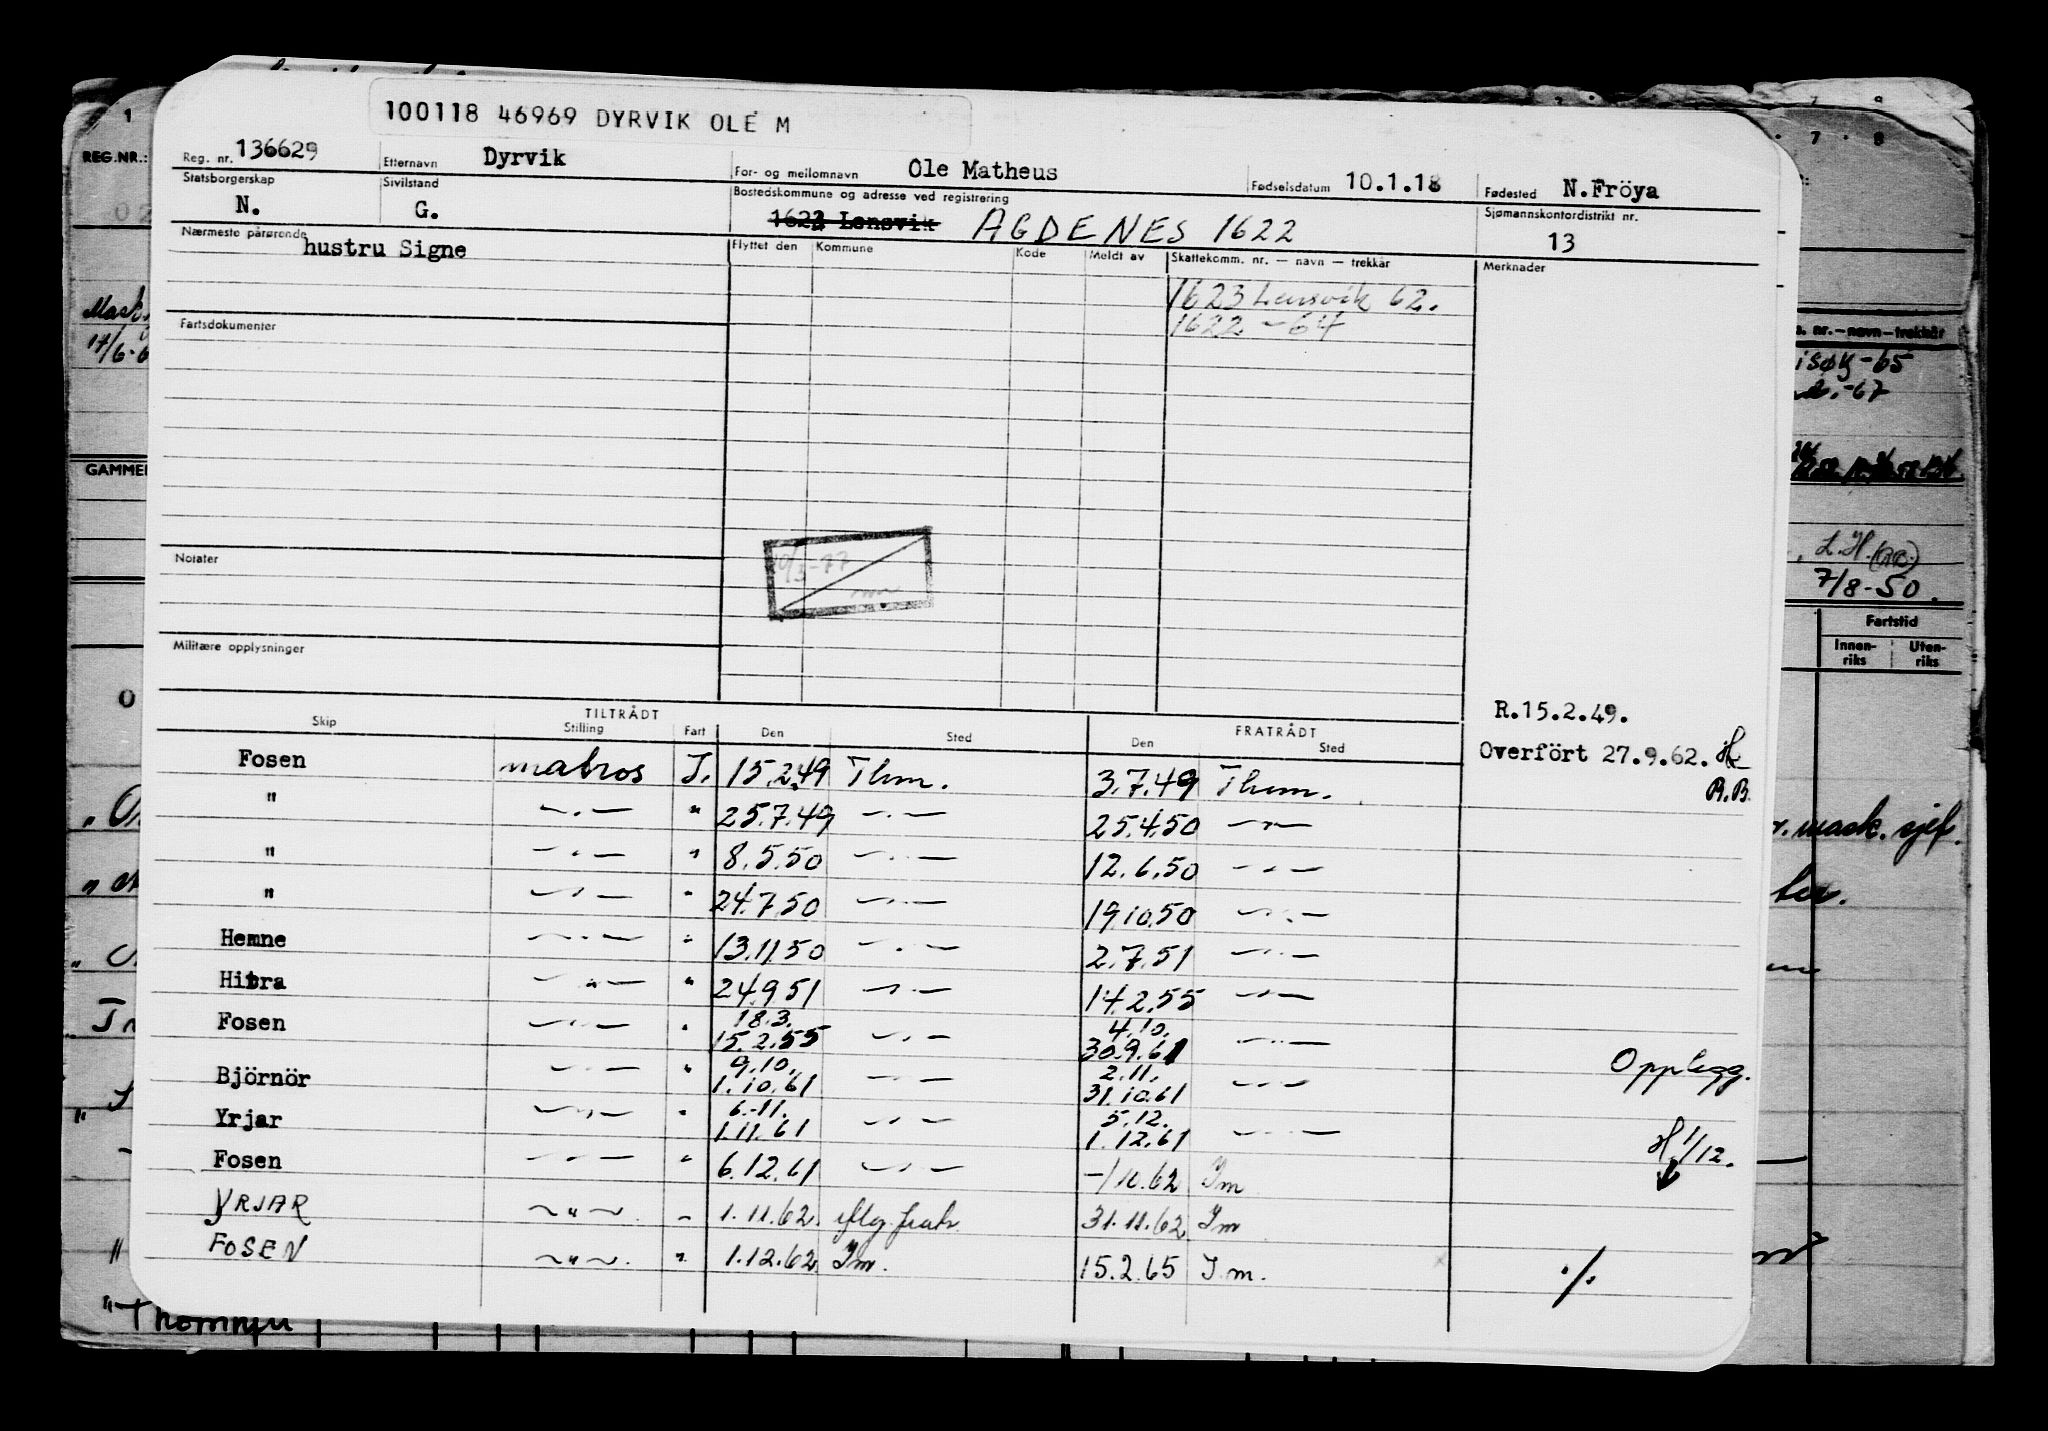 100118 46969 DYRVIK OLE M
Reg. nr. 136629 Etternavn Dyrvik For- og mellomnavn Ole Matheus Fødselsdatum 10.1.18 Fødested N.Fröya
Statsborgerskap N. Sivilstand G. Bostedskommune og adresse ved registrering Lensvik AGDENES 1622 Sjømannskontordistrikt nr. 13
Nærmeste pårørende hustru Signe Flyttet den Kommune Kode Meldt av Skattekomm. nr. — navn — trekkår Merknader
1623 Lensvik 62.
1622 - 64
Fartsdokumenter
Notater
Militære opplysninger
R.15.2.49.
Overfört 27.9.62.
R.B.
TILTRÅDT FRATRÅDT
Skip Stilling Fart Den Sted Den Sted
Fosen matros I. 15.2.49 Thm. 3.7.49 Thm.
" —.— " 25.7.49 —.— 25.4.50 —"—
" —.— " 8.5.50 —.— 12.6.50 —.—
" —.— " 24.7.50 —.— 19.10.50 —.—
Hemne —.— " 13.11.50 —.— 2.7.51 —.—
Hitra —"— " 24.9.51 —.— 14.2.55 —.—
Fosen —.— " 18.3. 15.2.55 —.— 4.10. 30.9.61 —.—
Opplegg.
Björnör —.— " 9.10. 1.10.61 —.— 2.11. 31.10.61 —.—
Yrjar —"— " 6.-11. 1.11.61 —.— 5.12. 1.12.61 —.—
H. 1/12.
Fosen —.— " 6.12.61 —.— 62 Im
YRJAR ~"~ " 1.11.62. 31.11.62 Im
FOSEN ~"~. " 1.12.62. Im. 15.2.65 I.m.
./.
1
REG.NR.:
Mask.
GAMMEL
"Thorinn
7 8
nr.—navn—trekkår
-65
-67
L.H.
7/8-50.
Fartstid
Innen-riks Uten-riks
mask. sjef.